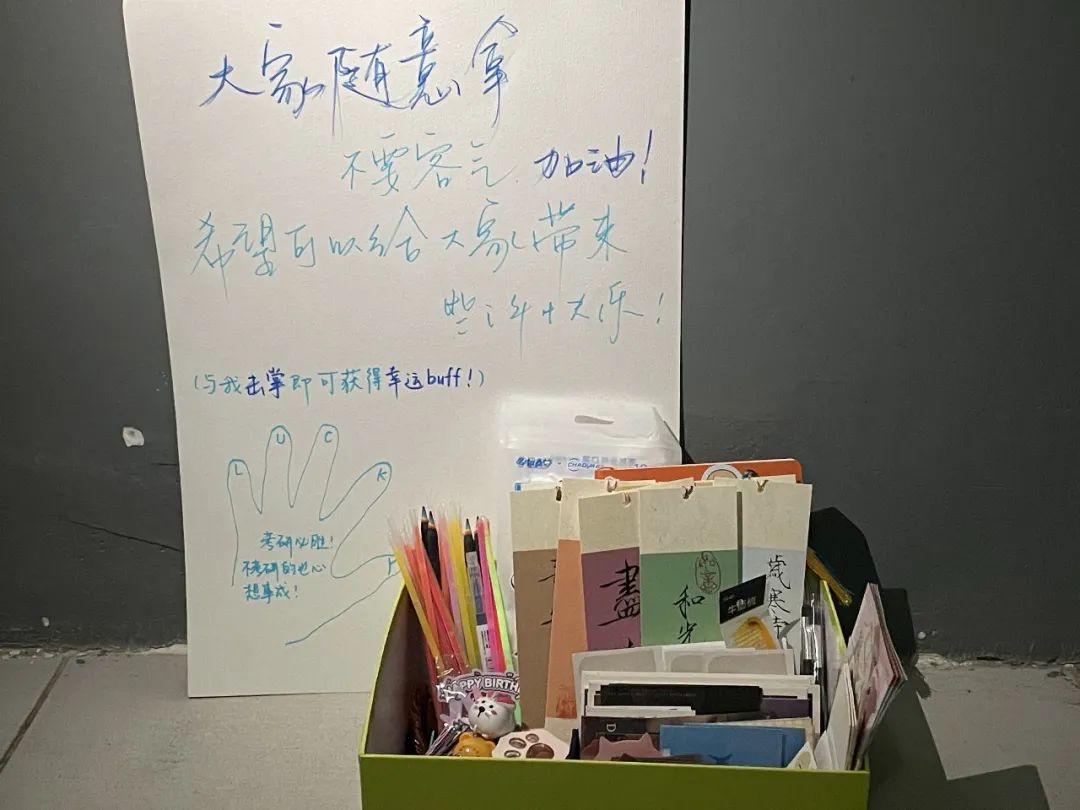 大家随意拿
不要客气 加油!
希望可以给大家带来
些许快乐!
(与我击掌即可获得幸运buff!)
L U C K Y
考研必胜!
不考研的也心
想事成!
HAPPY BIRTH
盡
和光
歲寒